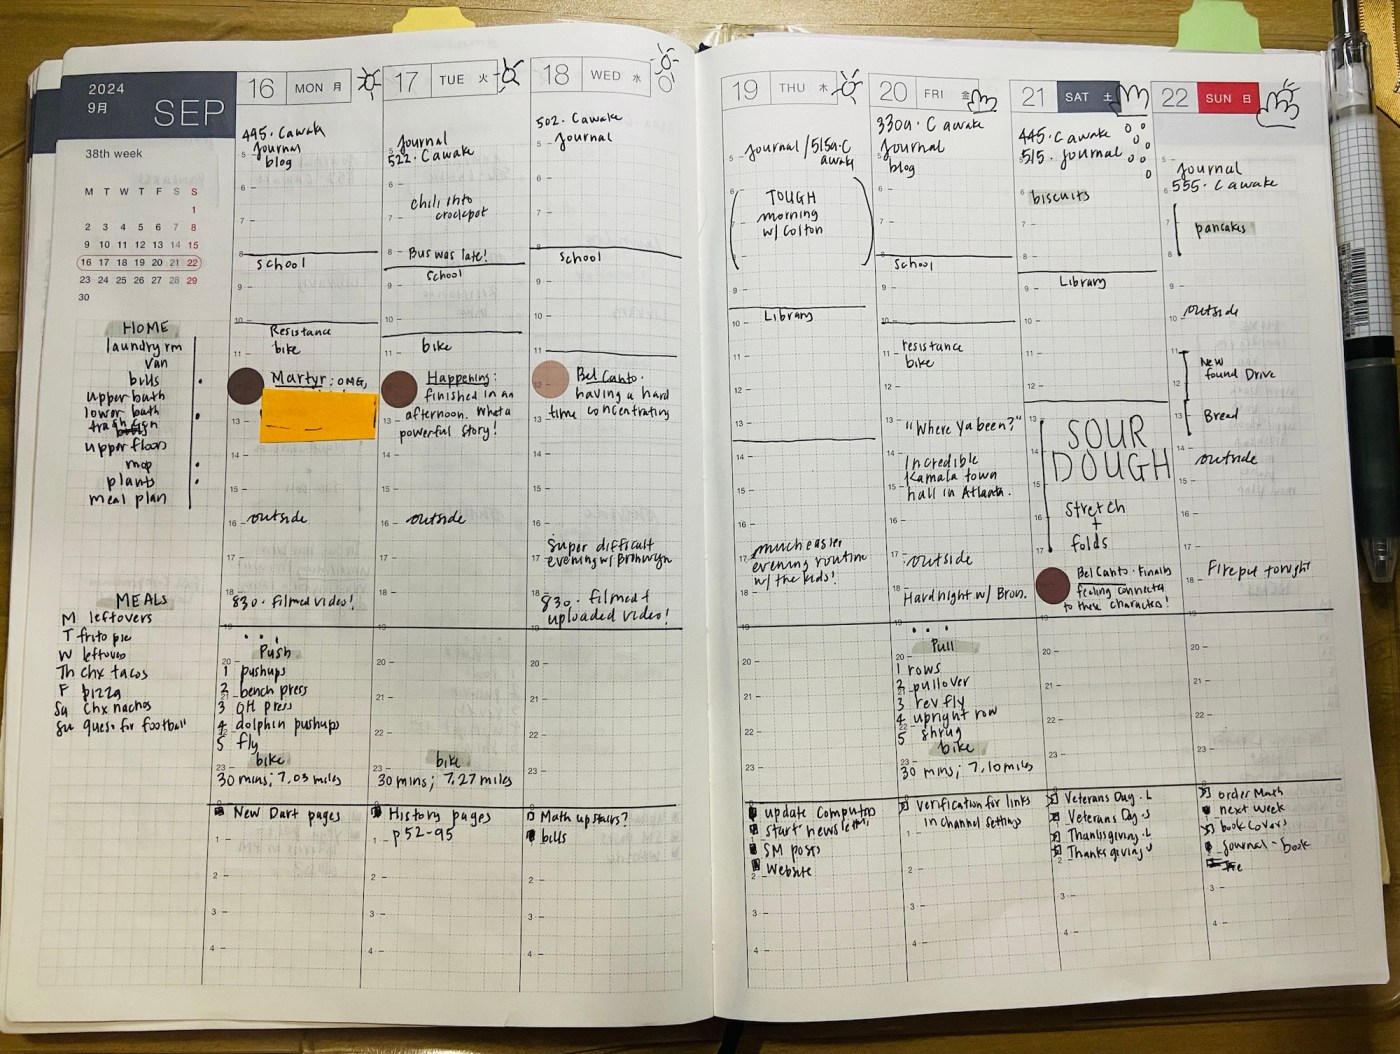 2024
9月
SEP
38th week
M T W T F S S
1
2 3 4 5 6 7 8
9 10 11 12 13 14 15
16 17 18 19 20 21 22
23 24 25 26 27 28 29
30
HOME
laundry rm
van
bills
upper bath
lower bath
trash
upper floors
mop
plants
meal plan
MEALS
M leftovers
T frito pie
W leftovers
Th chx tacos
F pizza
Sa chx nachos
Su queso for football
16 MON 月
495. C awake
Journal
blog
school
Resistance
bike
Martyr: OMG,
outside
830. Filmed video!
Push
1 pushups
2 bench press
3 OH press
4 dolphin pushups
5 fly
bike
30 mins; 7.03 miles
New Dart pages
17 TUE 火
Journal
522. C awake
chili into
crockpot
Bus was late!
school
bike
Happening:
finished in an
afternoon. What a
powerful story!
outside
bike
30 mins; 7.27 miles
History pages
p 52-95
18 WED 水
502. C awake
Journal
School
Bel Canto.
having a hard
time concentrating
Super difficult
evening w/ Bronwyn
830. filmed +
uploaded video!
Math upstairs?
bills
19 THU 木
Journal / 515a. C
awake
TOUGH
morning
w/ Colton
Library
much easier
evening routine
w/ the kids!
update Computers
start newsletter
SM posts
Website
20 FRI 金
330a. C awake
Journal
blog
School
resistance
bike
"Where Ya been?"
Incredible
Kamala town
hall in Atlanta.
outside
Hard night w/ Bron.
Pull
1 rows
2 pullover
3 rev fly
4 upright row
5 shrug
bike
30 mins; 7.10 miles
Verification for links
in channel settings
21 SAT 土
445. C awake
515. Journal
biscuits
Library
SOUR
DOUGH
stretch
+
folds
Bel Canto. Finally
feeling connected
to these characters!
Veterans Day. L
Veterans Day. S
Thanksgiving. L
Thanksgiving
22 SUN 日
Journal
555. C awake
pancakes
outside
New
found Drive
Bread
outside
Firepit tonight
order Math
next week
book covers
Journal - book